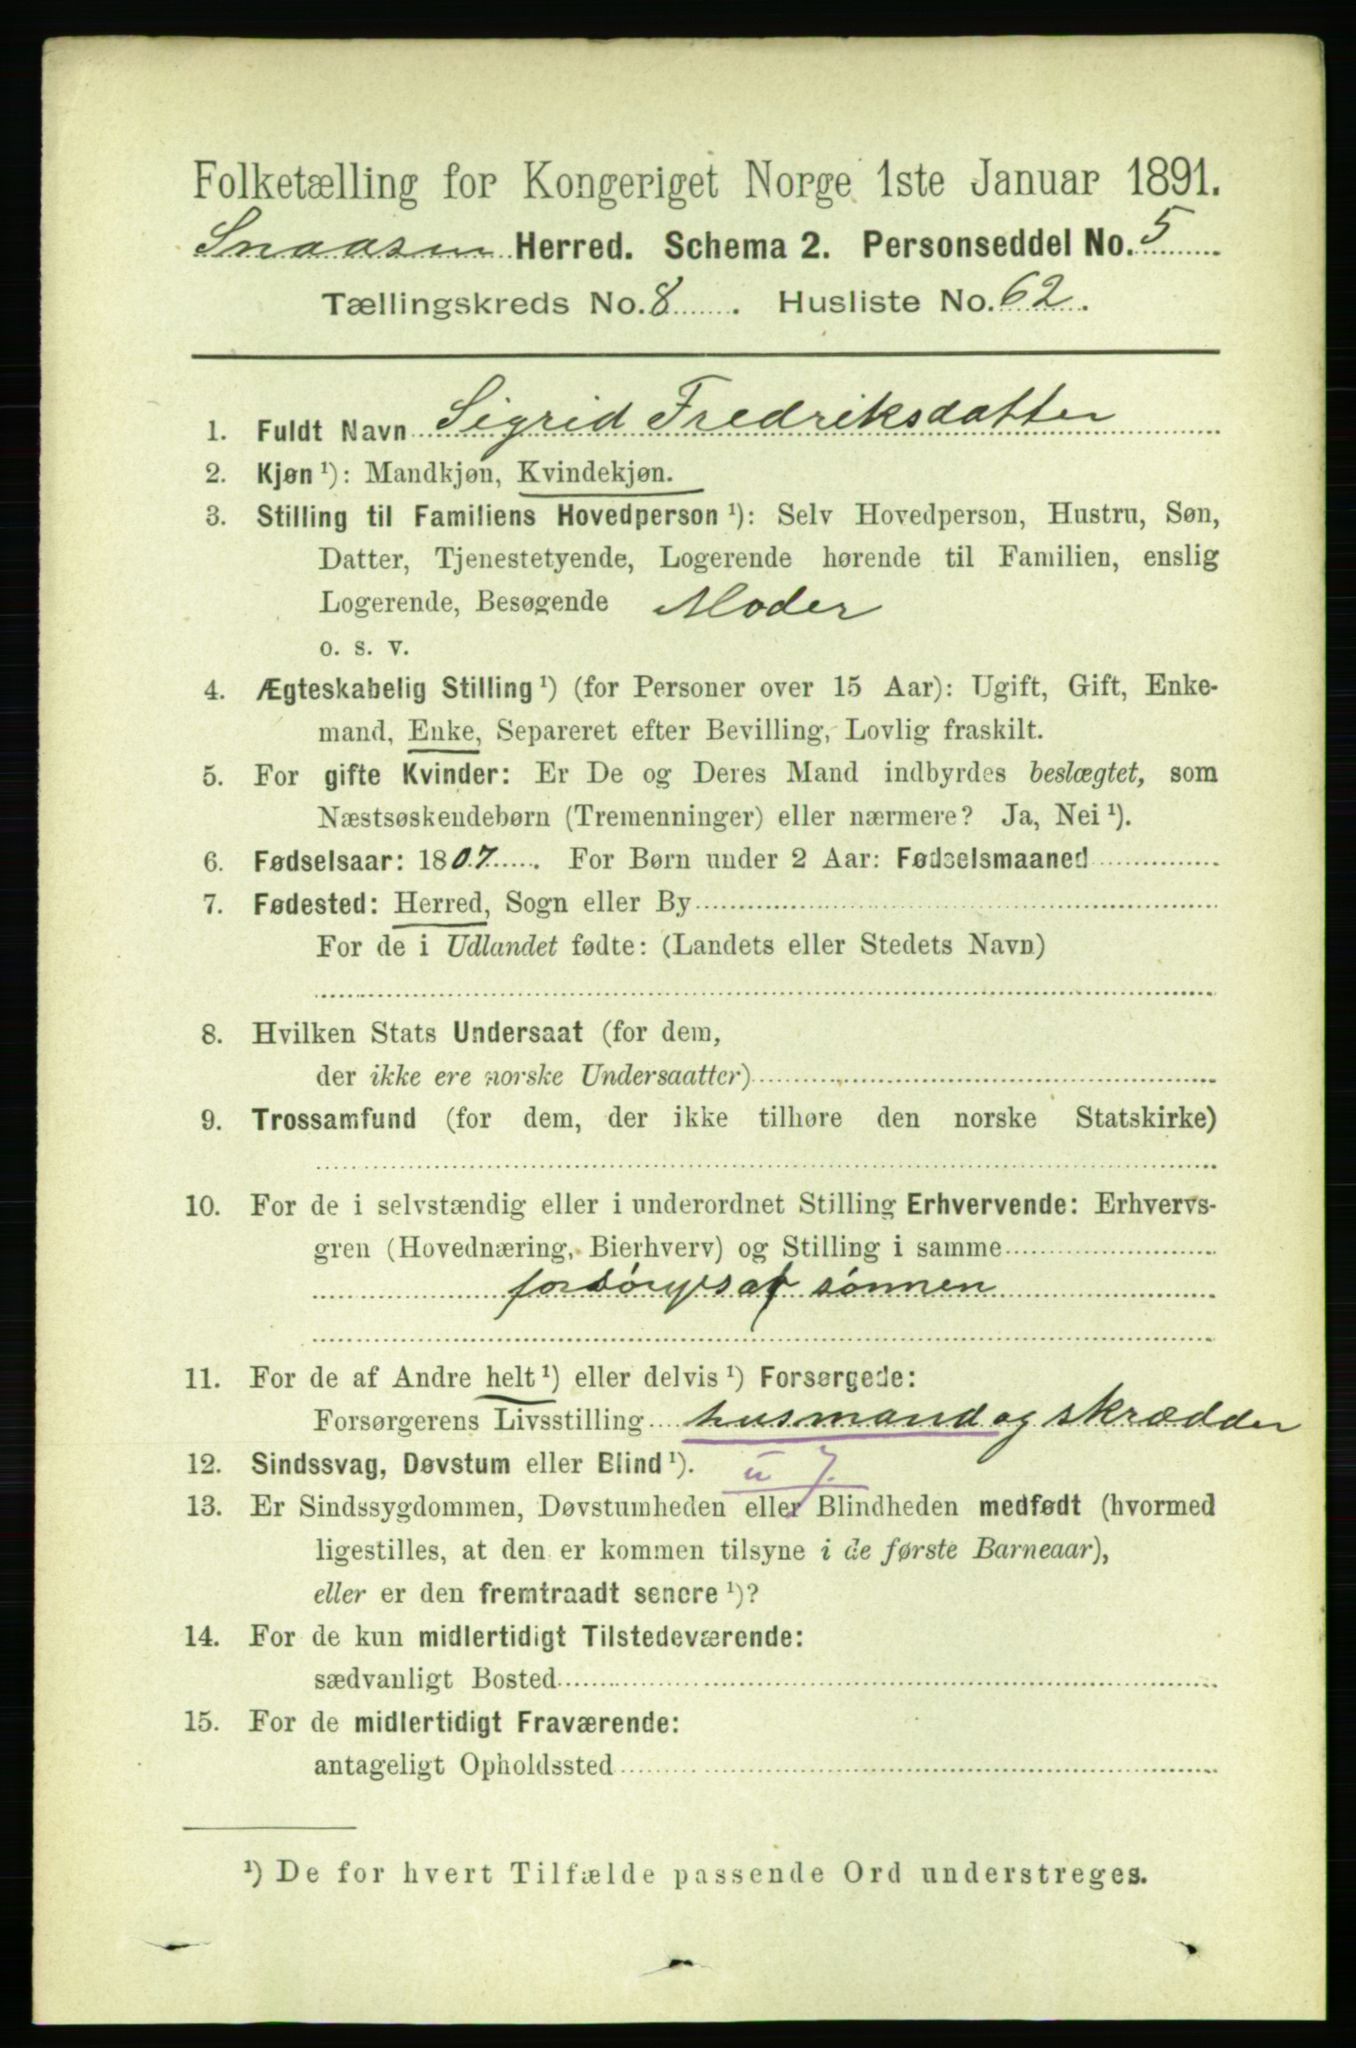 Folketælling for Kongeriget Norge 1ste Januar 1891.
Snaasen Herred. Schema 2. Personseddel No. 5
Tællingskreds No. 8. Husliste No. 62.
1. Fuldt Navn Sigrid Fredriksdatter
2. Kjøn ¹): Mandkjøn, Kvindekjøn.
3. Stilling til Familiens Hovedperson ¹): Selv Hovedperson, Hustru, Søn,
Datter, Tjenestetyende, Logerende hørende til Familien, enslig
Logerende, Besøgende Moder
o. s. v.
4. Ægteskabelig Stilling ¹) (for Personer over 15 Aar): Ugift, Gift, Enke-
mand, Enke, Separeret efter Bevilling, Lovlig fraskilt.
5. For gifte Kvinder: Er De og Deres Mand indbyrdes beslægtet, som
Næstsøskendebørn (Tremenninger) eller nærmere? Ja, Nei ¹).
6. Fødselsaar: 1807. For Børn under 2 Aar: Fødselsmaaned
7. Fødested: Herred, Sogn eller By
For de i Udlandet fødte: (Landets eller Stedets Navn)
8. Hvilken Stats Undersaat (for dem,
der ikke ere norske Undersaatter)
9. Trossamfund (for dem, der ikke tilhøre den norske Statskirke)
10. For de i selvstændig eller i underordnet Stilling Erhvervende: Erhvervs-
gren (Hovednæring, Bierhverv) og Stilling i samme
forsörges af sönnen
11. For de af Andre helt ¹) eller delvis ¹) Forsørgede:
Forsørgerens Livsstilling husmand og skrædder
12. Sindssvag, Døvstum eller Blind ¹).
13. Er Sindssygdommen, Døvstumheden eller Blindheden medfødt (hvormed
ligestilles, at den er kommen tilsyne i de første Barneaar),
eller er den fremtraadt senere ¹)?
14. For de kun midlertidigt Tilstedeværende:
sædvanligt Bosted
15. For de midlertidigt Fraværende:
antageligt Opholdssted
¹) De for hvert Tilfælde passende Ord understreges.